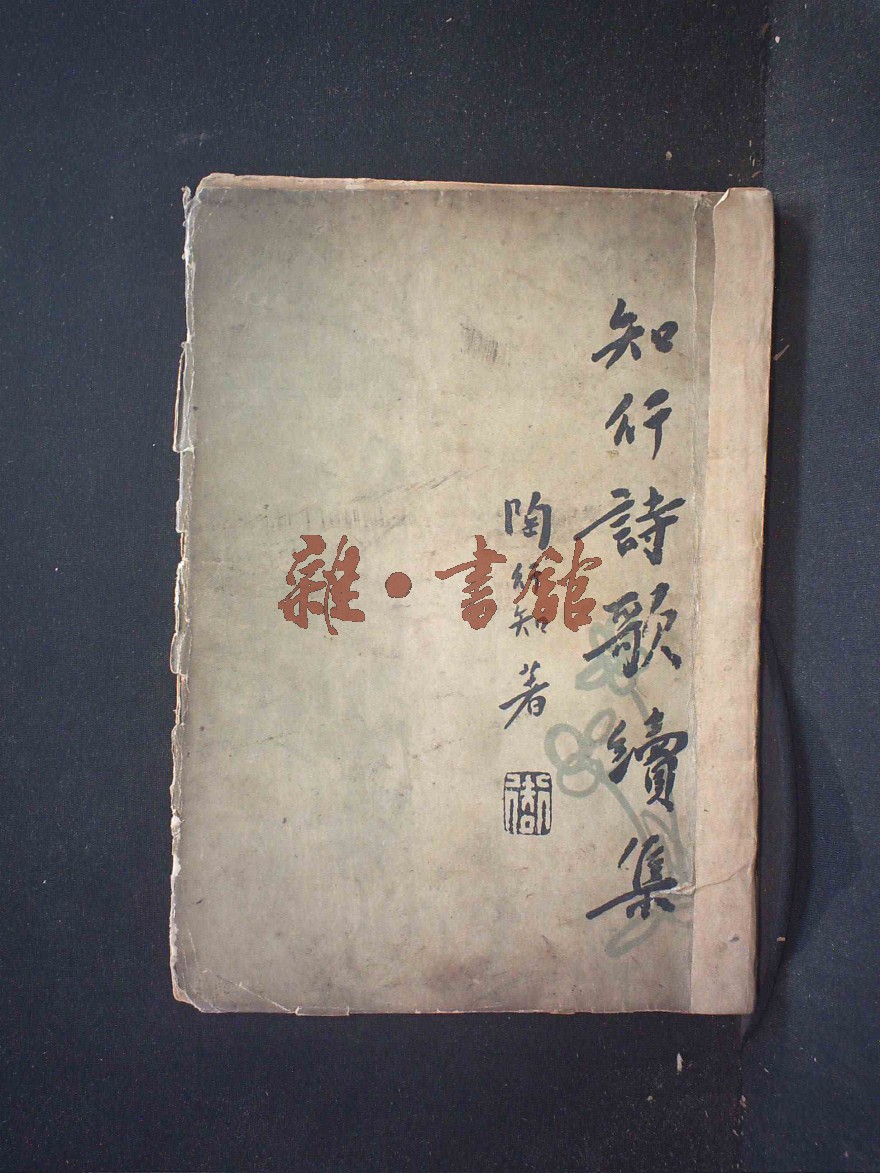 知行詩歌續集
陶行知 著
雜·書館